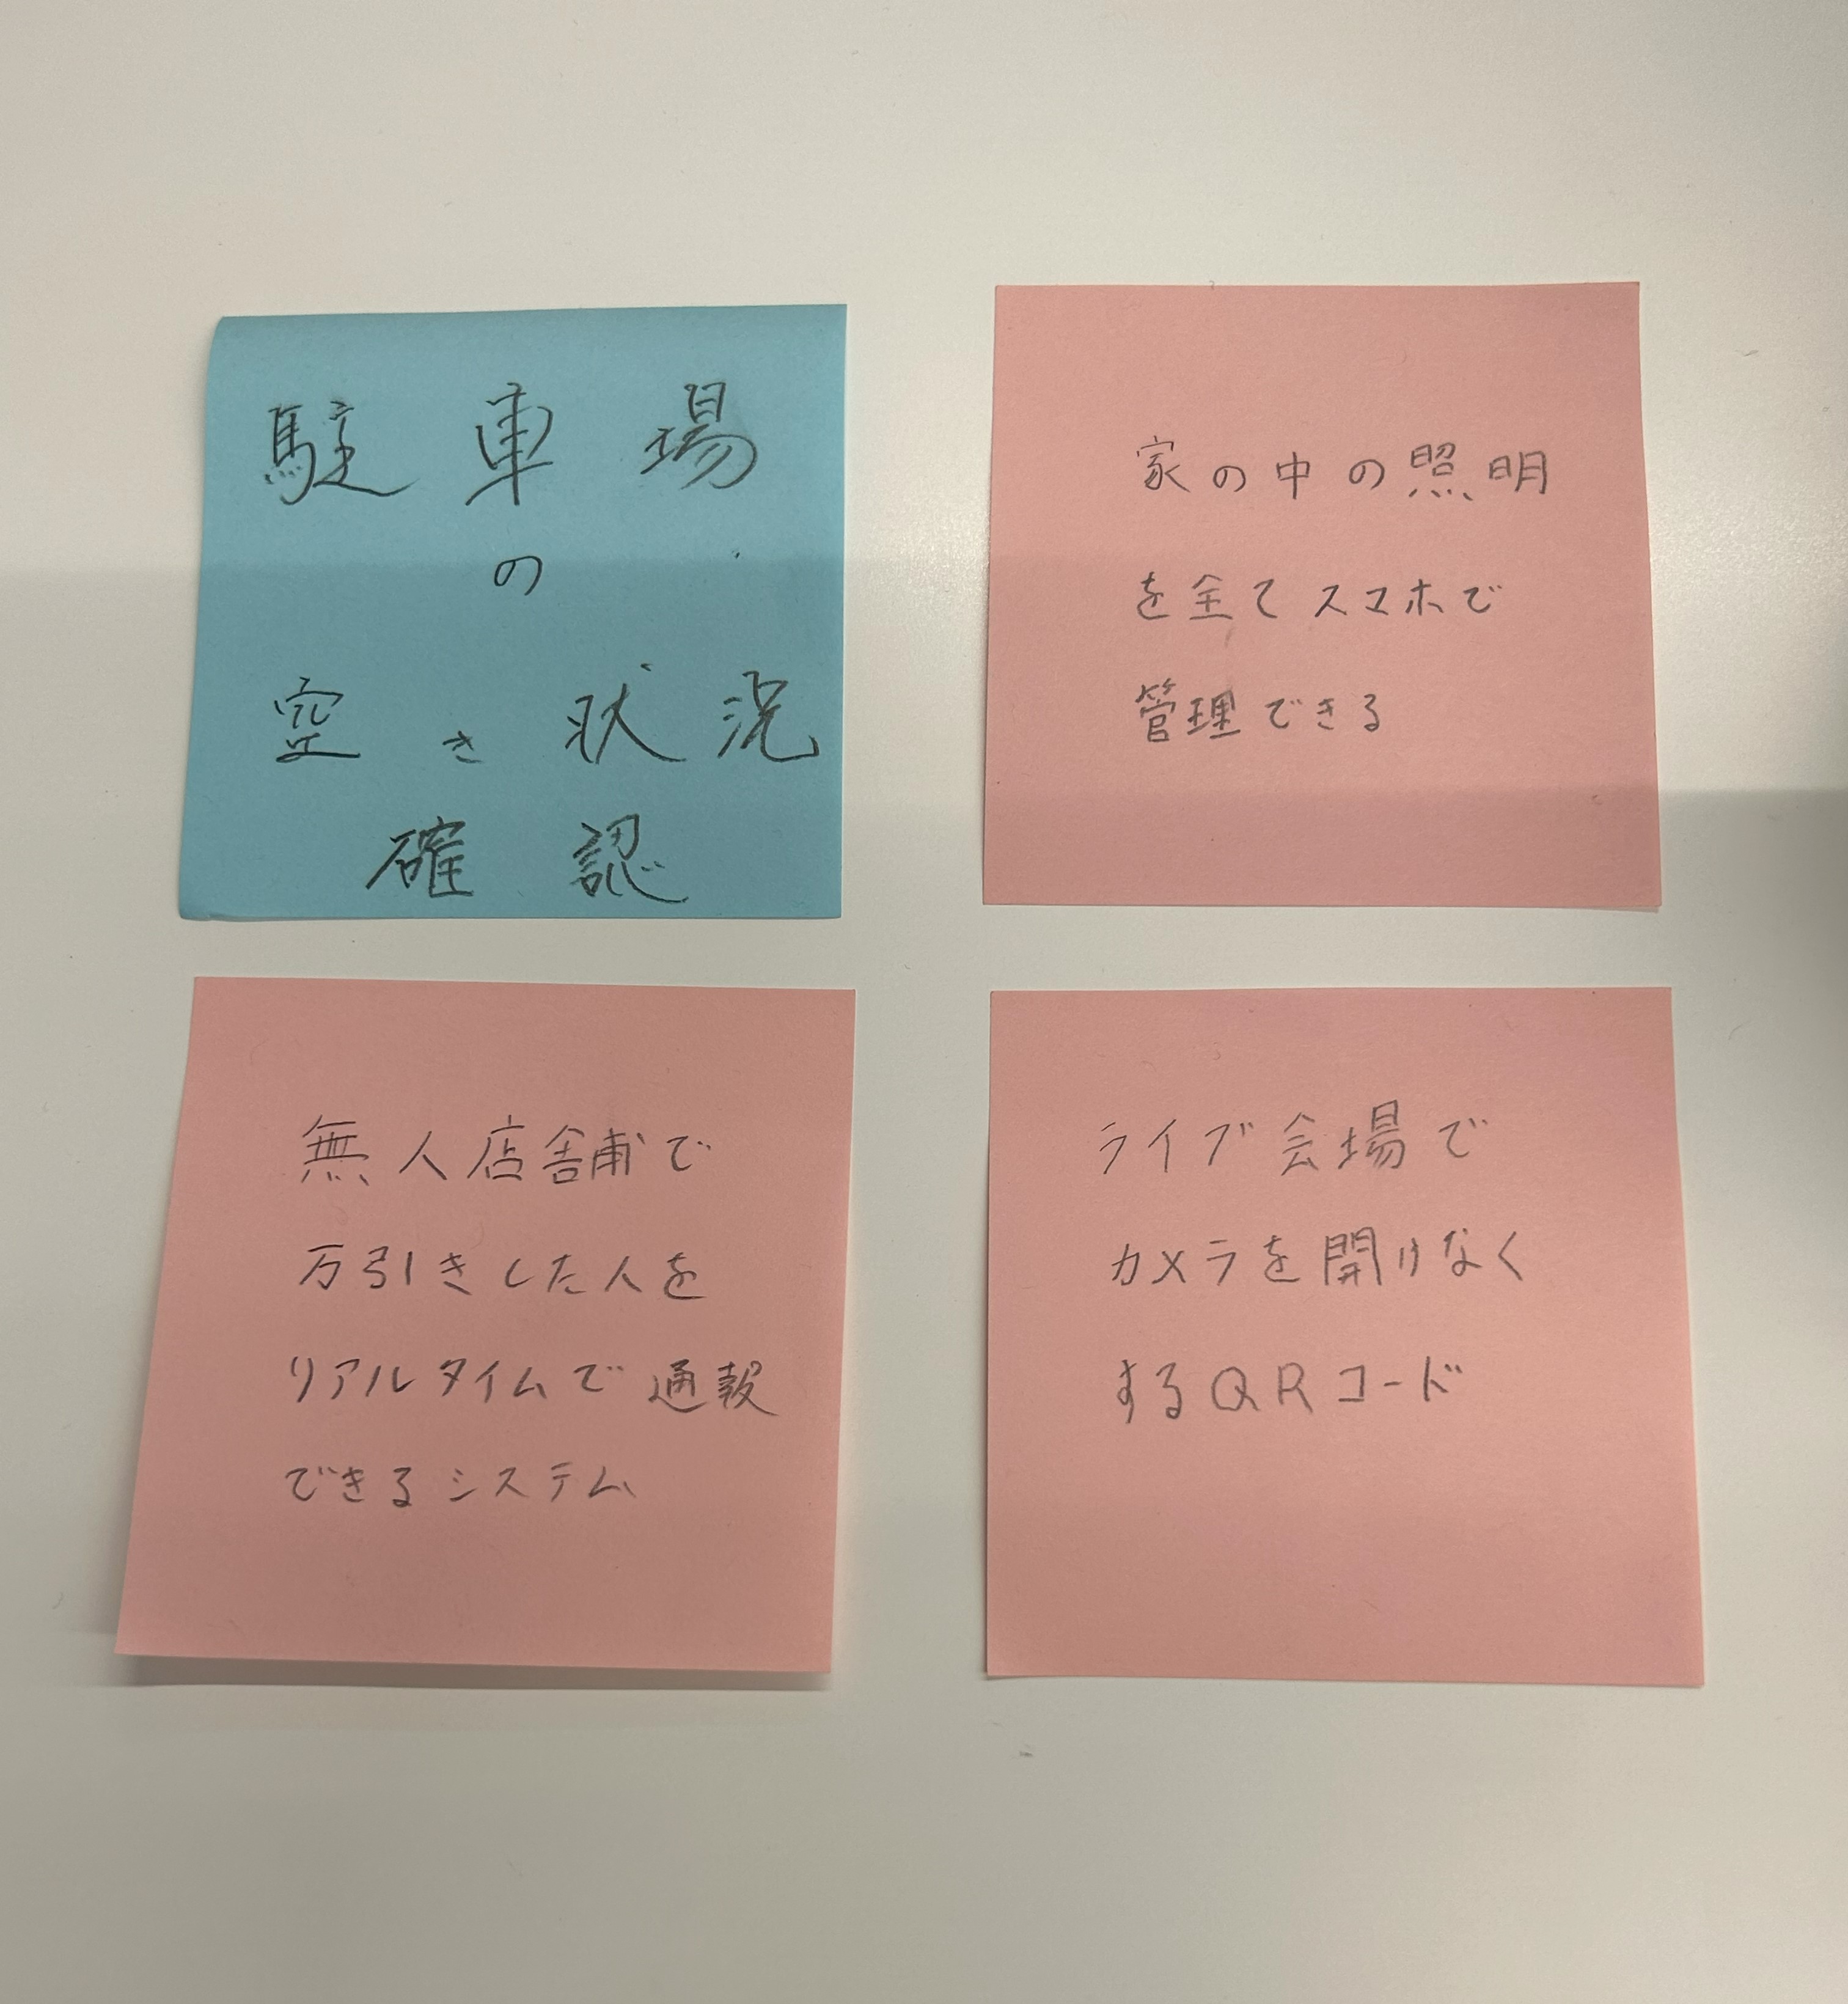 駐車場
の
空き状況
確認
家の中の照明
を全てスマホで
管理できる
無人店舗で
万引きした人を
リアルタイムで通報
できるシステム
ライブ会場で
カメラを開けなく
するQRコード